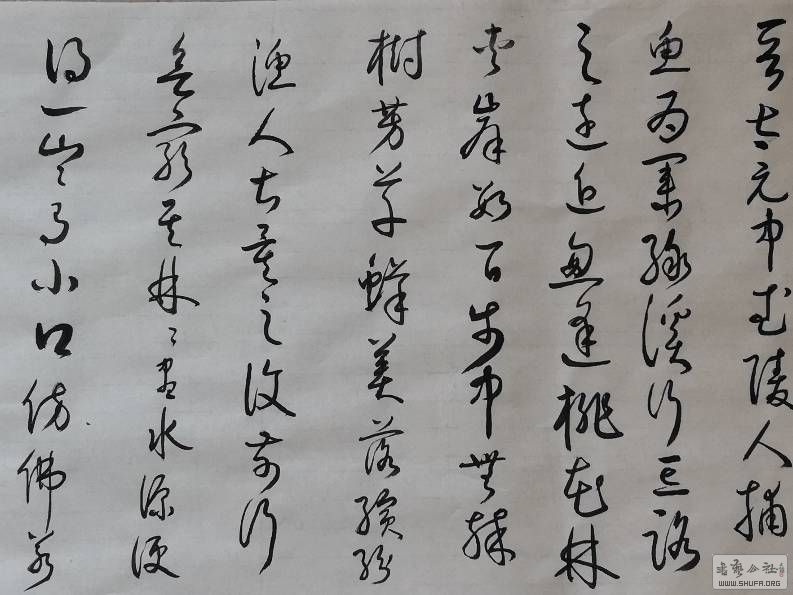 晋太元中武陵人捕
魚为業緣溪行忘路
之远近忽逢桃花林
夹岸数百步中無雜
樹芳草鮮美落繽紛
漁人甚異之復前行
欲窮其林々尽水源便
得一山々有小口仿佛若
書藝公社
WWW.SHUFA.ORG